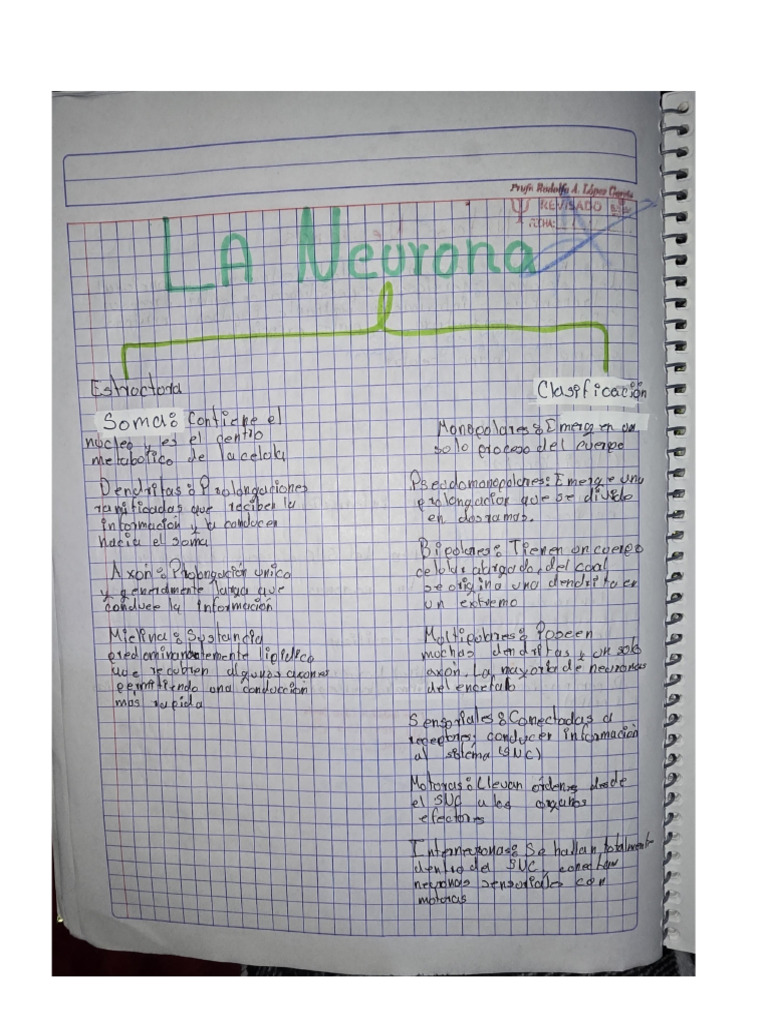 Profr. Rodolfo A. López
REVISADO
FECHA:
LA Neurona
Estructura
Soma: Contiene el
núcleo y es el centro
metabólico de la celula
Dendritas: Prolongaciones
ramificadas que reciben la
información y la conducen
hacia el soma
Axón: Prolongación unico
y generalmente larga que
conduce la información
Mielina: Sustancia
predominantemente lipidica
que recubren algunos axones
permitiendo una conducción
más rapida
Clasificación
Monopolares: Emergen un
solo proceso del cuerpo
Pseudomonopolares: Emerge una
prolongacion que se divide
en dos ramas.
Bipolares: Tienen un cuerpo
celular alargado, del cual
se origina una dendrita en
un extremo
Multipolares: Poseen
muchas dendritas y un solo
axón. La mayoria de neuronas
del encefalo
Sensoriales: Conectadas a
receptores, conducen información
al sistema (SNC)
Motoras: Llevan órdenes desde
el SNC a los organos
efectores
Interneuronas: Se hallan totalmente
dentro del SNC, conectan
neuronas sensoriales con
motoras